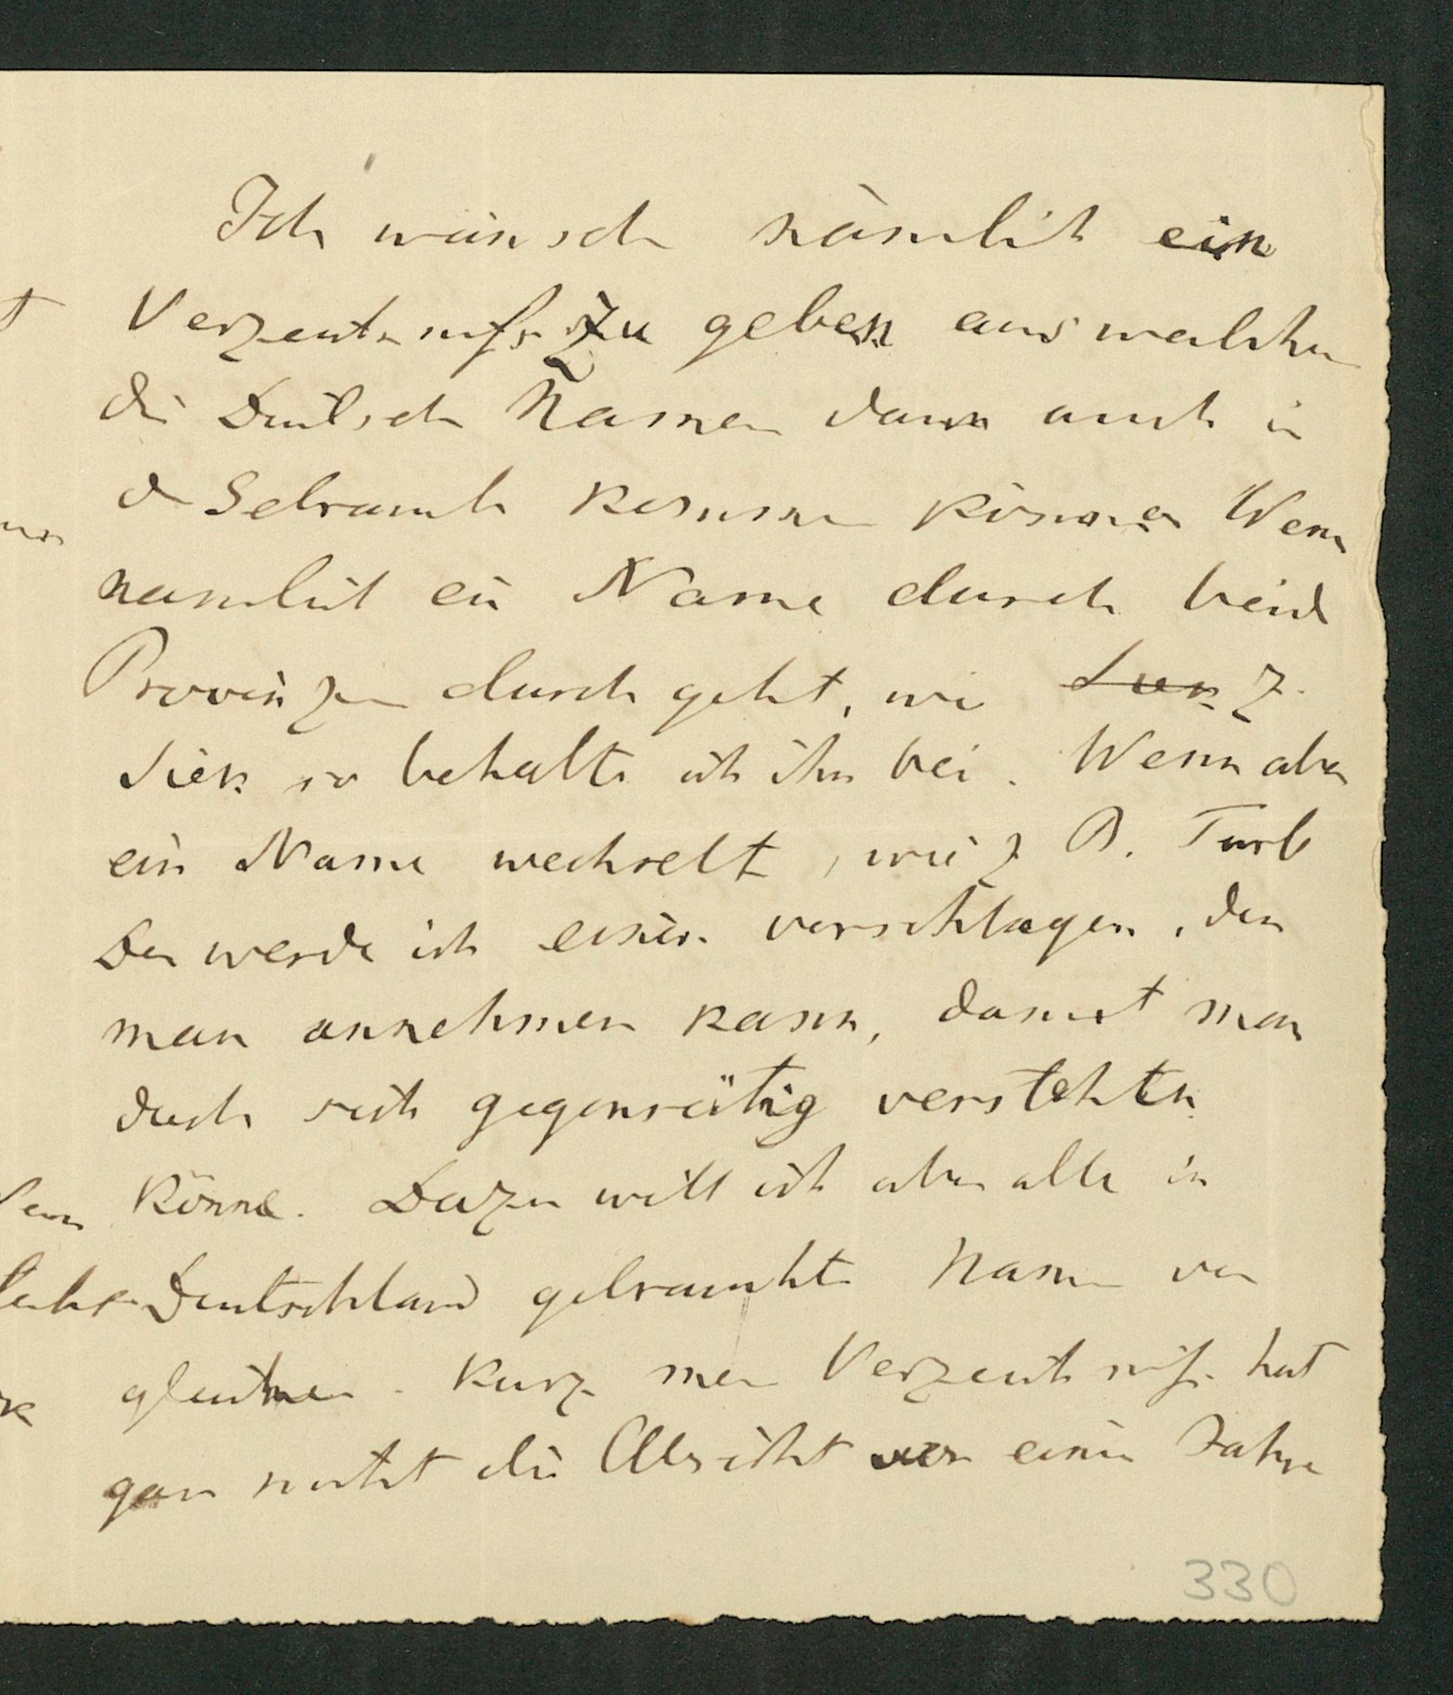 Ich wünsche nämlich ein
Verzeichniß zu geben aus welchem
die Deutsche Namen dann auch in
d Gebrauch kommen können Wenn
namlich ein Name durch beide
Provinzen durch geht, wie z.
so behalte ich ihn bei. Wenn aber
ein Name wechselt, wie z B.
Da werde ich einen vorschlagen, den
man annehmen kann, damit man
doch sich gegenseitig verstehen
könne. Dazu will ich aber alle in
Deutschland gebrauchte Namen ver
gleichen. Kurz mein Verzeichniß hat
gar nicht die Absicht einen
330